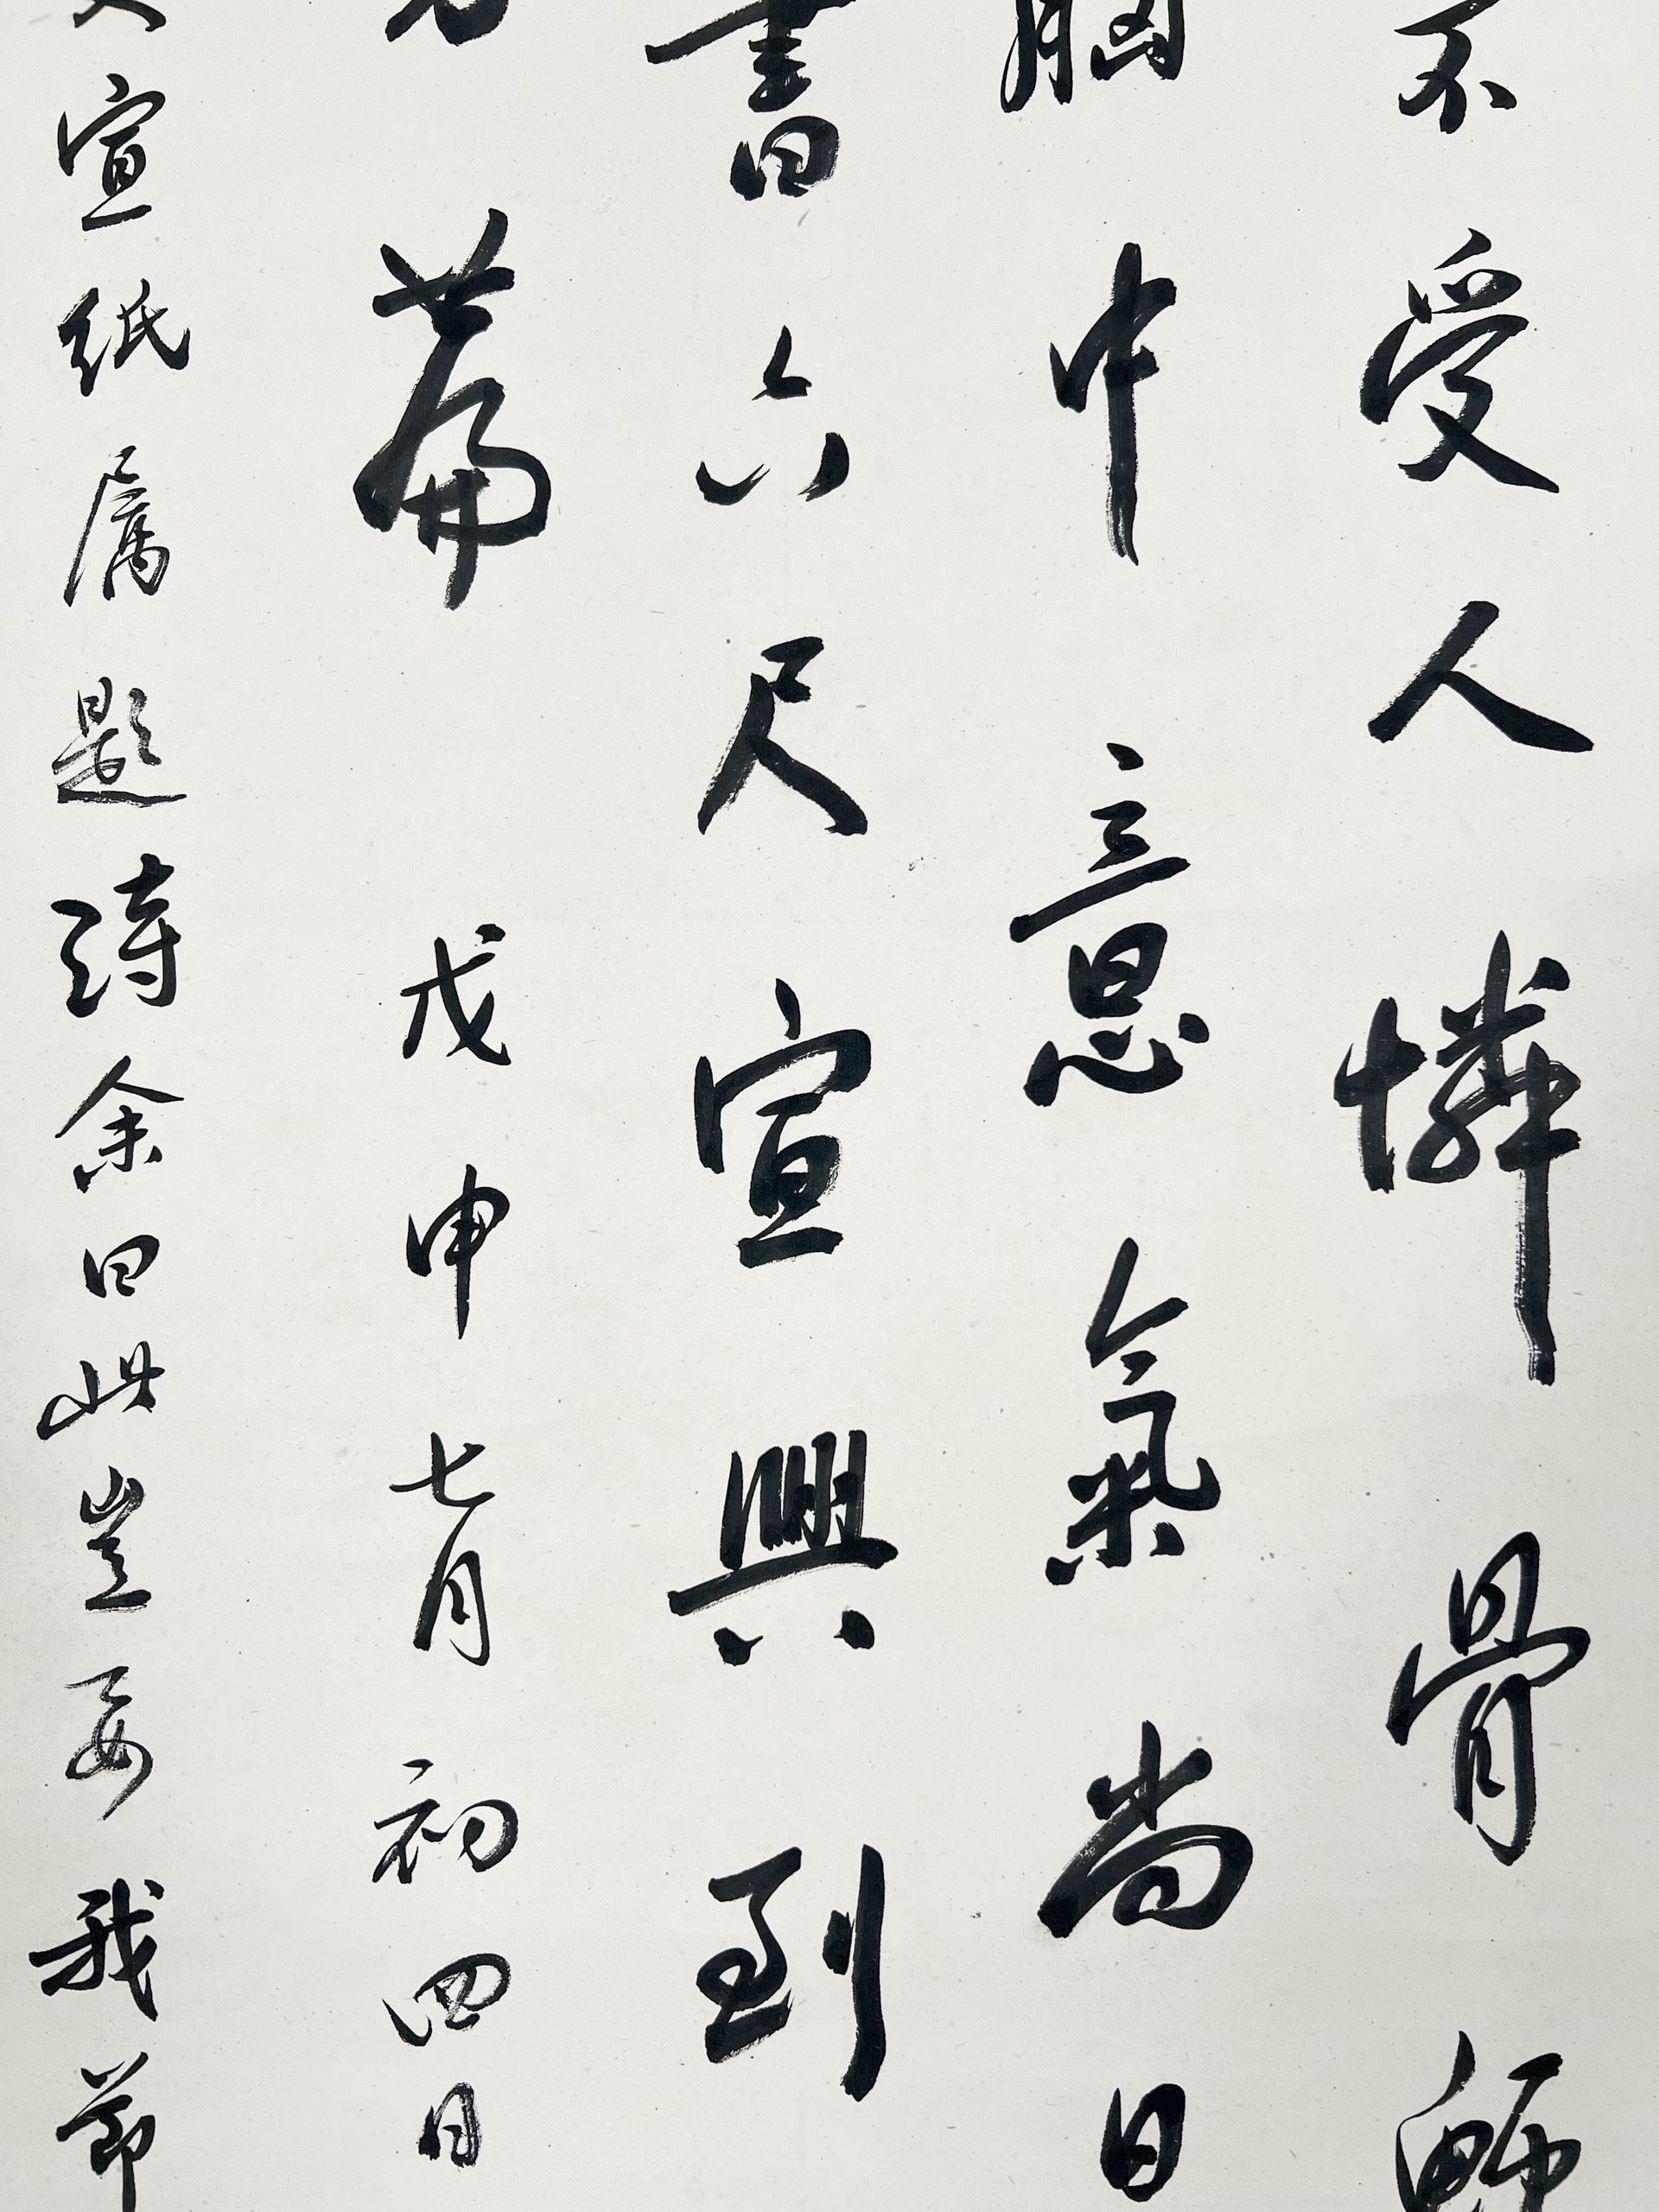 不受人憐骨
胸中意氣尚日
書六尺宣興到
篇 戊申七月初四日
宣紙属題詩余曰此豈要我節